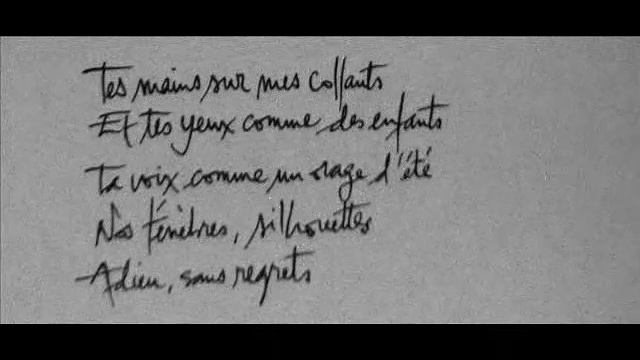 Tes mains sur mes collants
Et tes yeux comme des enfants
Ta voix comme un orage d'été
Nos ténèbres, silhouettes
Adieu, sans regrets